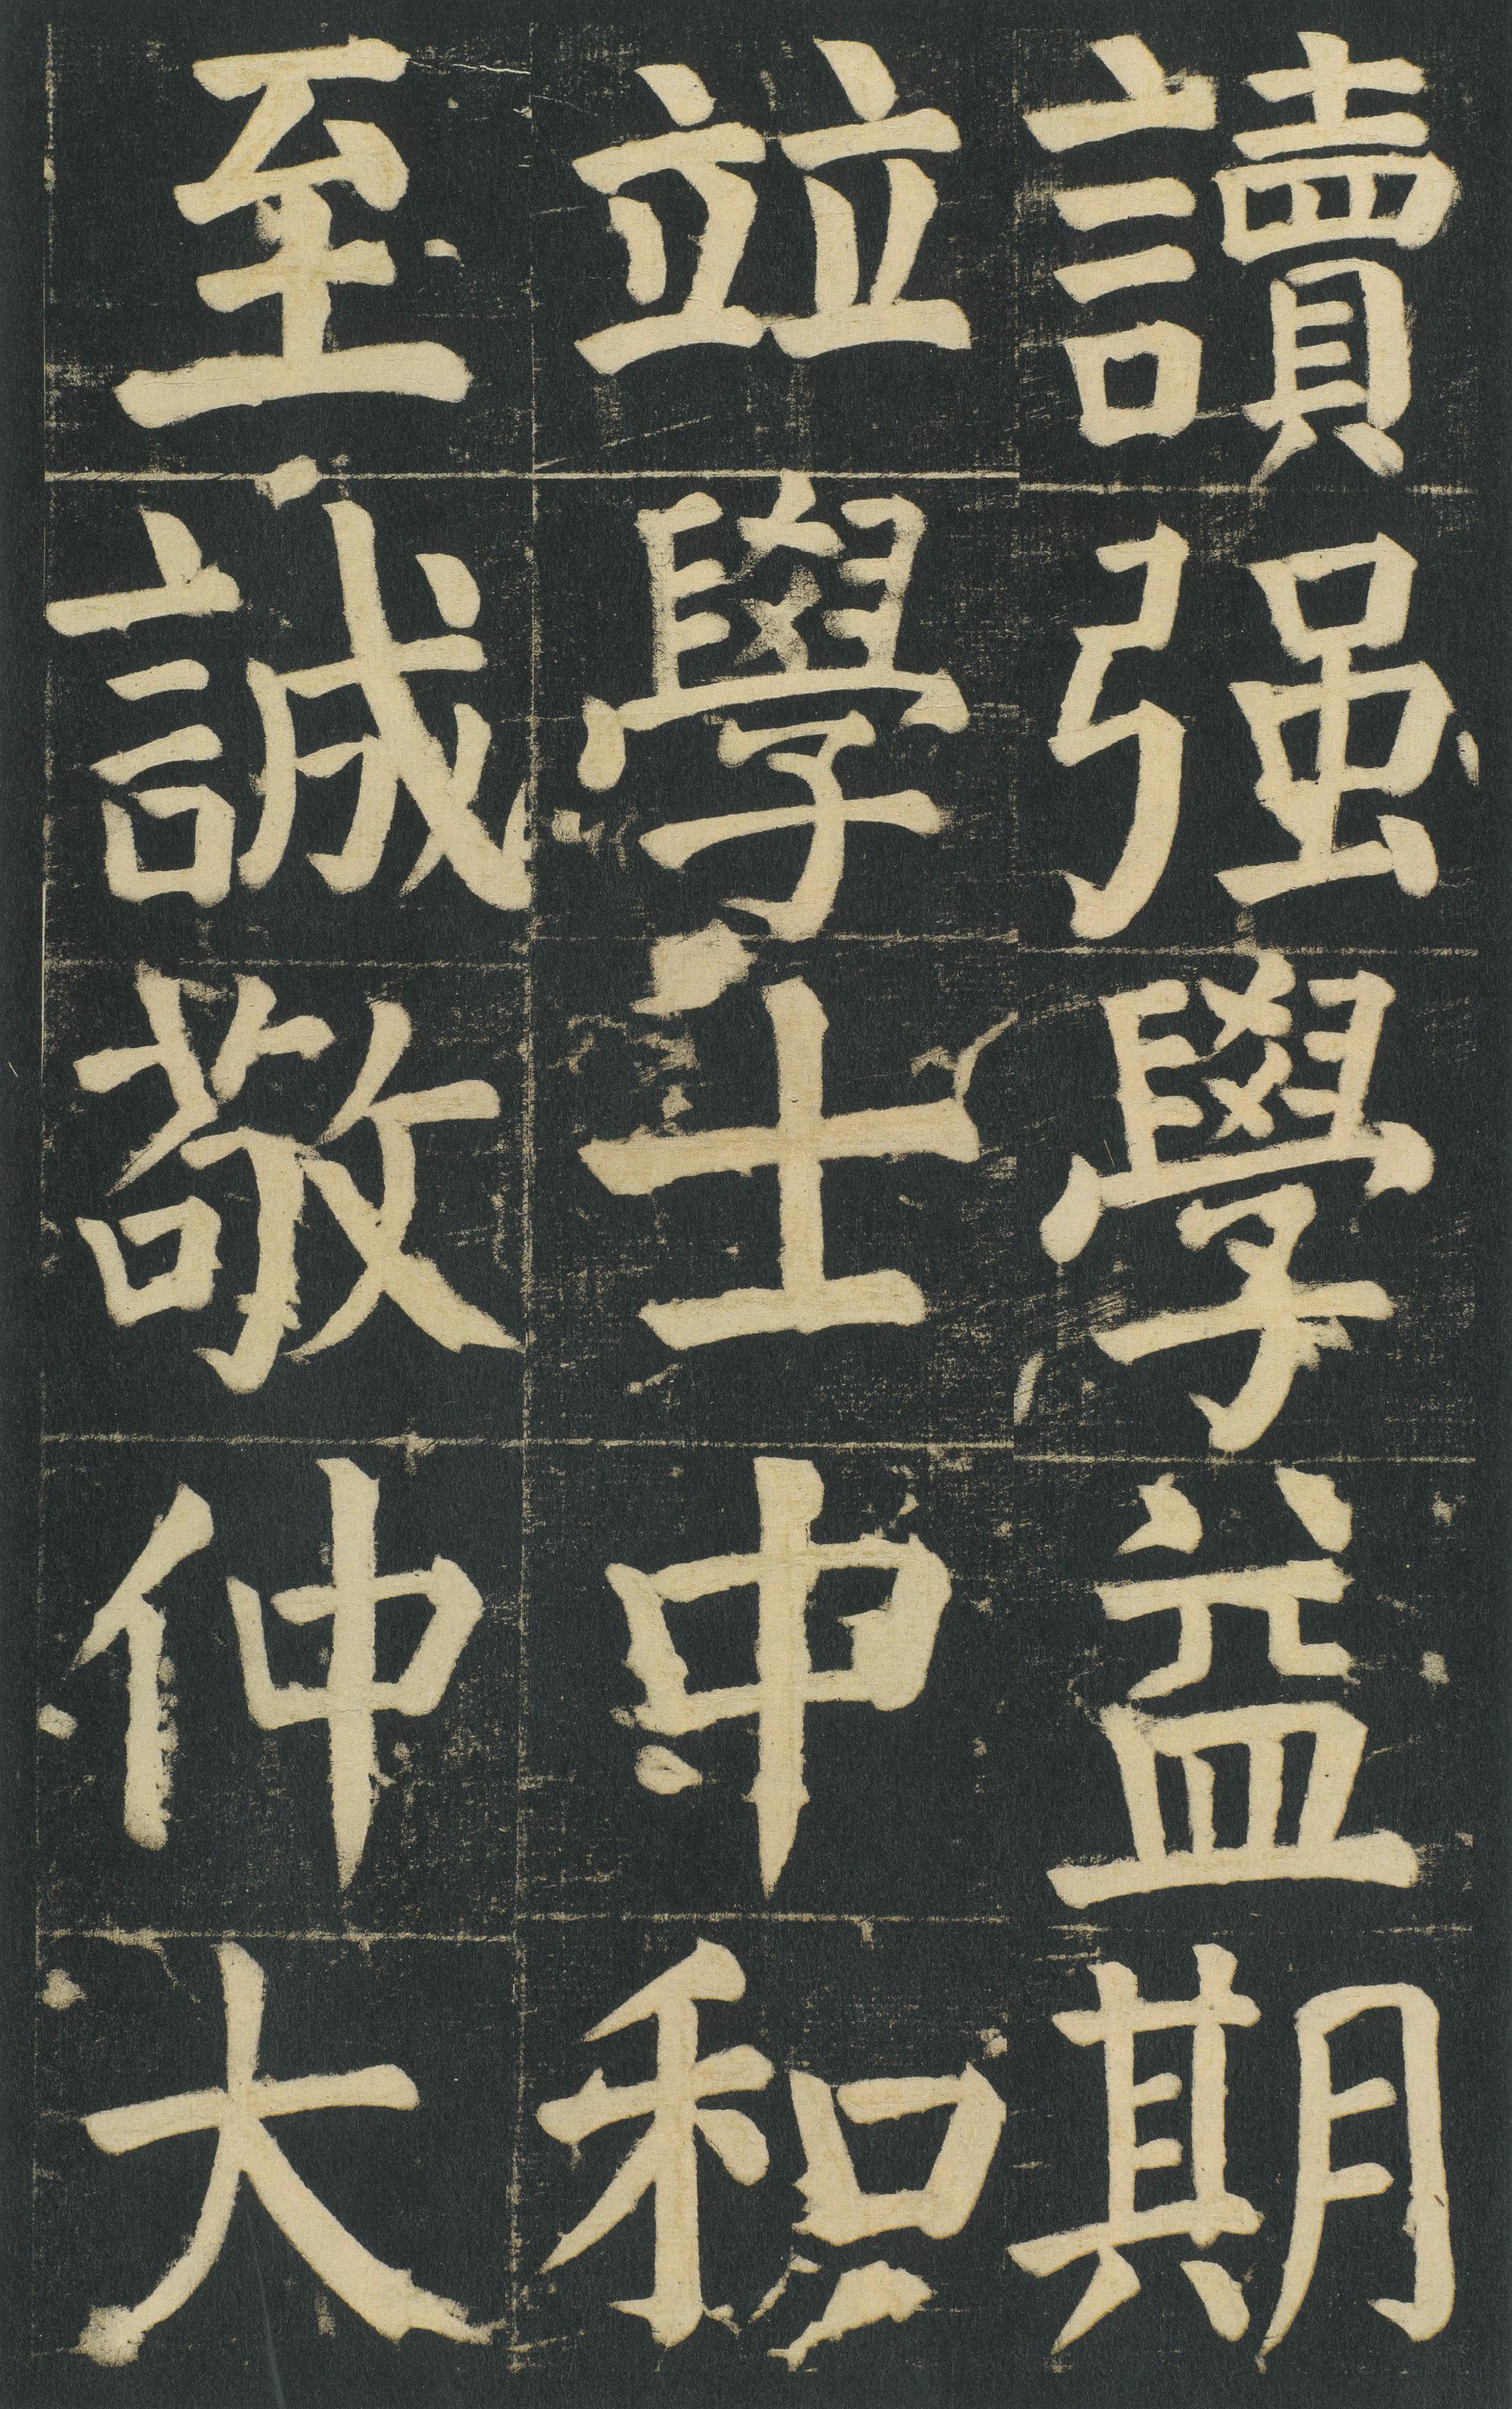 讀强學益期
竝學士中和
至誠敬仲大